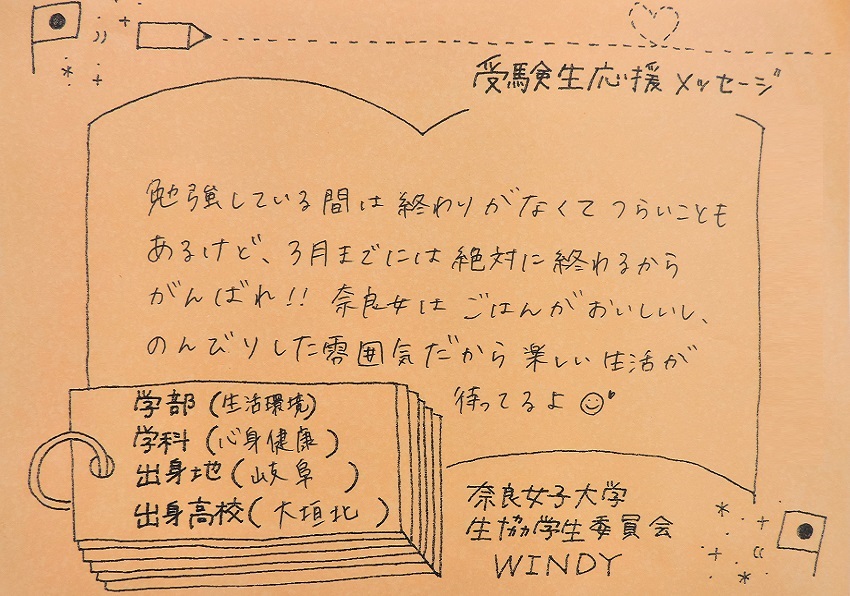 受験生応援メッセージ
勉強している間は終わりがなくてつらいことも
あるけど、3月までには絶対に終わるから
がんばれ!! 奈良女はごはんがおいしいし、
のんびりした雰囲気だから楽しい生活が
待ってるよ
学部(生活環境)
学科(心身健康)
出身地(岐阜)
出身高校(大垣北)
奈良女子大学
生協学生委員会
WINDY